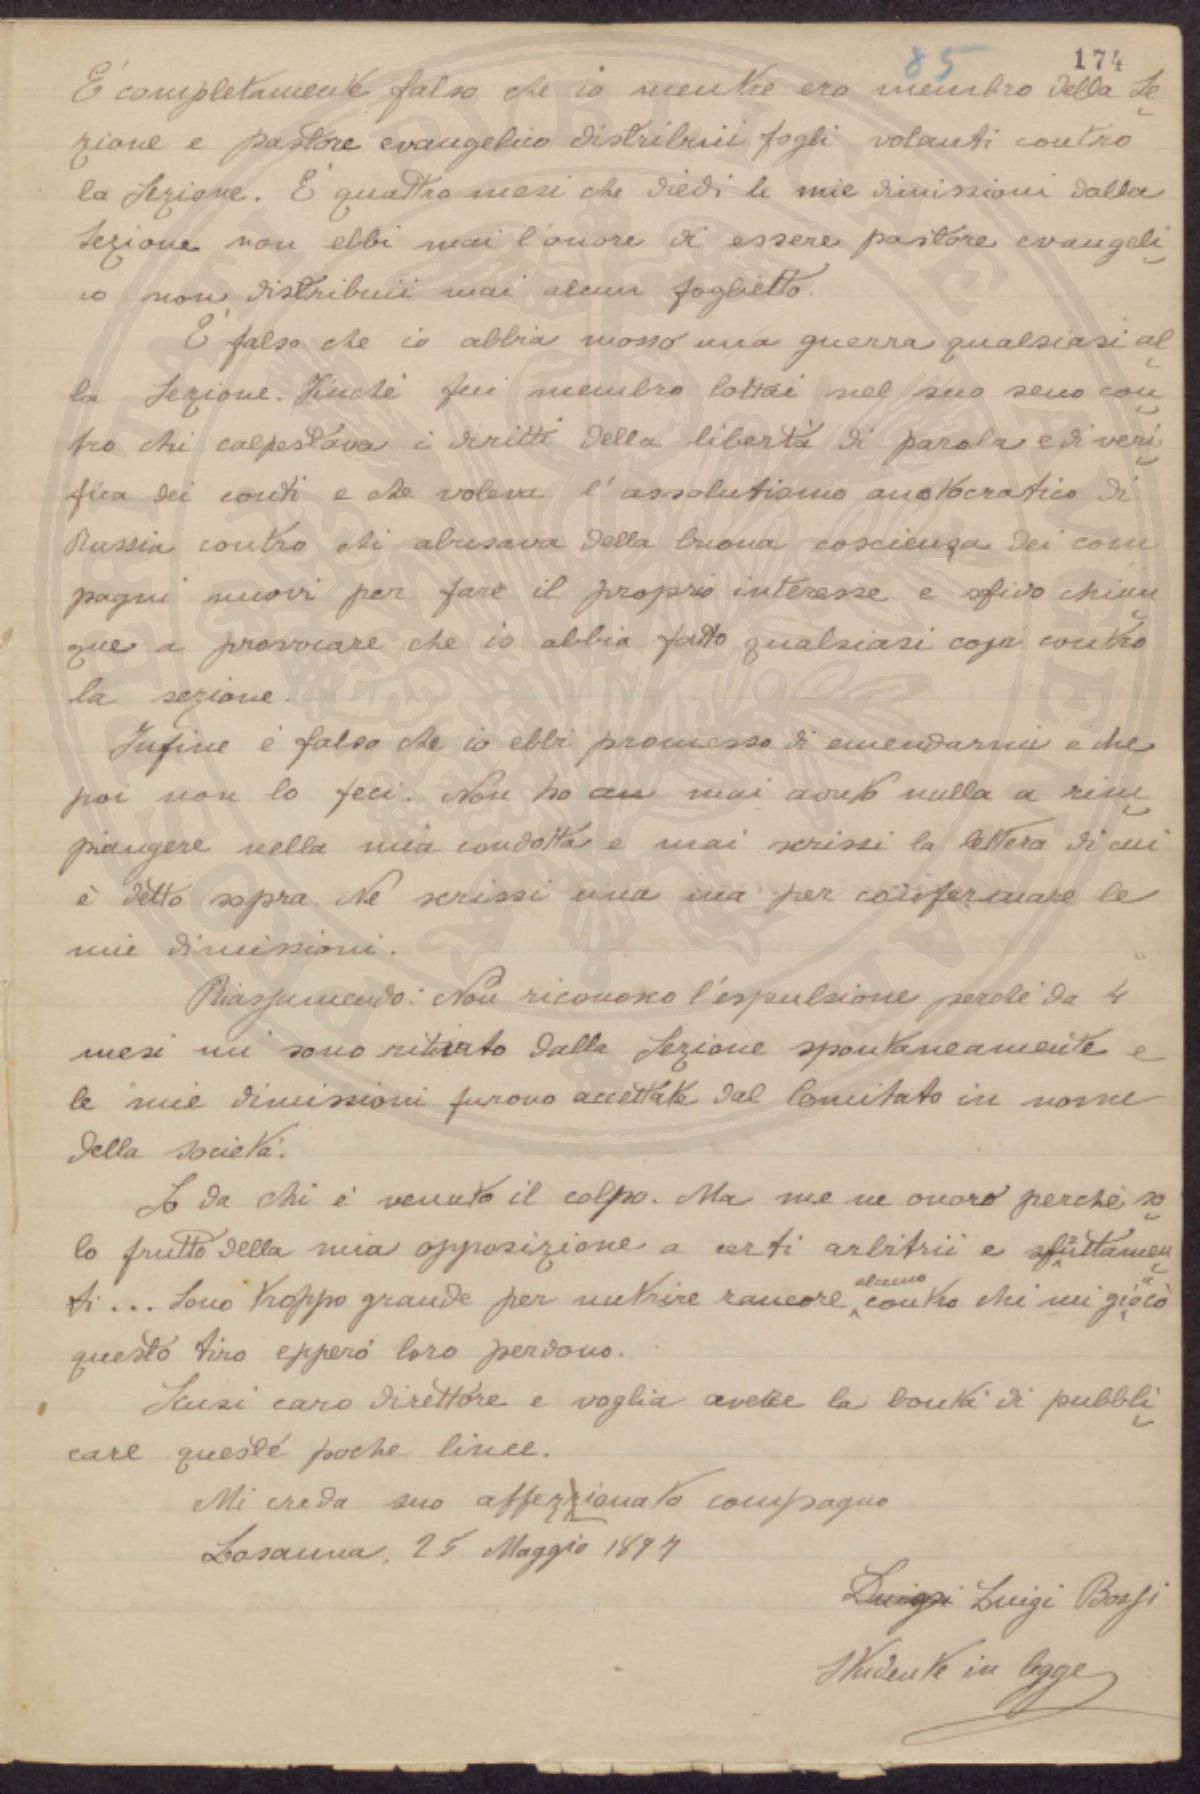 85 174
É completamente falso che io mentre ero membro della Se
zione e pastore evangelico distribuii fogli volanti contro
la Sezione. É quattro mesi che diedi le mie dimissioni dalla
Sezione non ebbi mai l'onore di essere pastore evangeli
co non distribuii mai alcun foglietto.
É falso che io abbia mosso una guerra qualsiasi al
la Sezione. Finché fui membro lottai nel suo seno con
tro chi calpestava i diritti della libertà di parola e di veri
fica dei conti e che voleva l'assolutismo autocratico di
Russia contro chi abusava della buona coscienza dei com
pagni nuovi per fare il proprio interesse e sfido chiun
que a provocare che io abbia fatto qualsiasi cosa contro
la sezione.
Infine é falso che io ebbi promesso di emendarmi e che
poi non lo feci. Non ho au mai avuto nulla a rim
piangere nella mia condotta e mai scrissi la lettera di cui
è detto sopra. Ne scrissi una ma per confermare le
mie dimissioni.
Riassumendo: Non riconosco l'espulsione perché da 4
mesi mi sono ritirato dalla Sezione spontaneamente e
le mie dimissioni furono accettate dal Comitato in nome
della società.
So da chi é venuto il colpo. Ma me ne onoro perché so
lo frutto della mia opposizione a certi arbitrii e sfruttamen
ti... Sono troppo grande per nutrire rancore alcuno contro chi mi giocò
questo tiro epperó loro perdono.
Scusi caro direttore e voglia avere la bontà di pubbli
care queste poche linee.
Mi creda suo affezzionato compagno
Losanna, 25 Maggio 1897
Luigi Luigi Bossi
Studente in legge